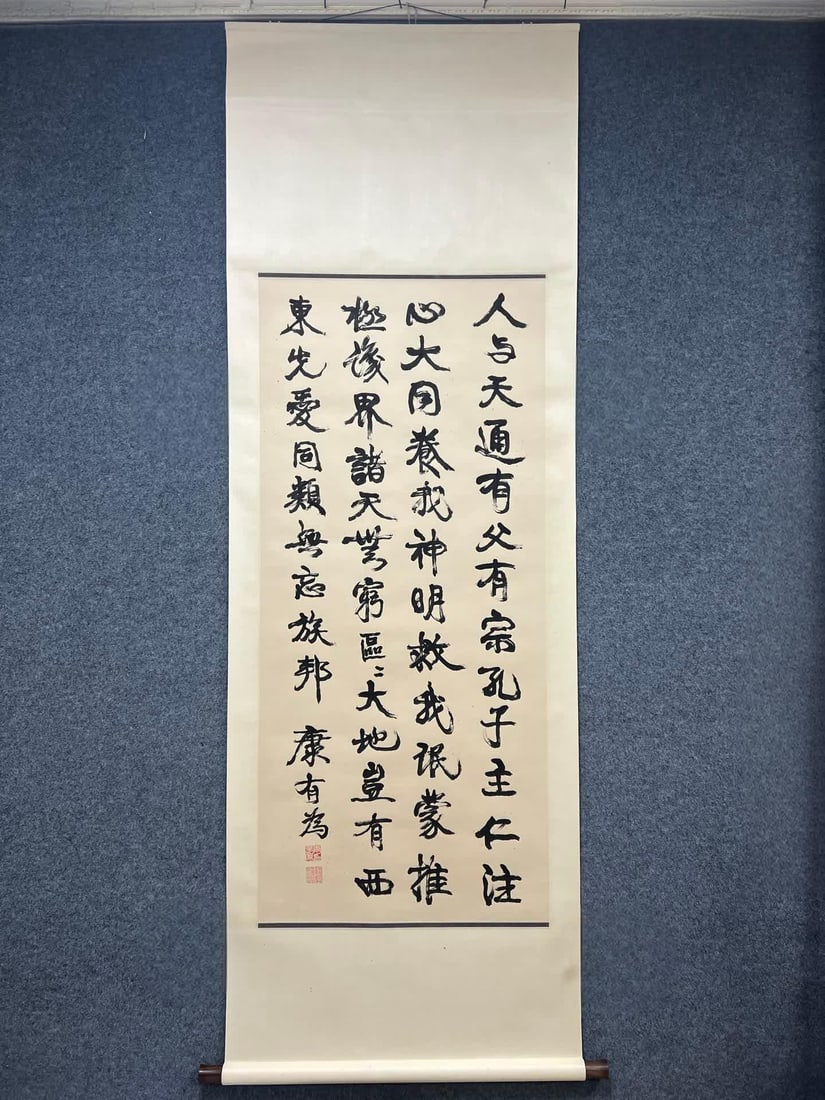 人与天通有父有宗孔子主仁注
心大同養我神明救我蒙推
極界諸天無窮區〻大地豈有西
東先愛同類無忘族邦 康有為